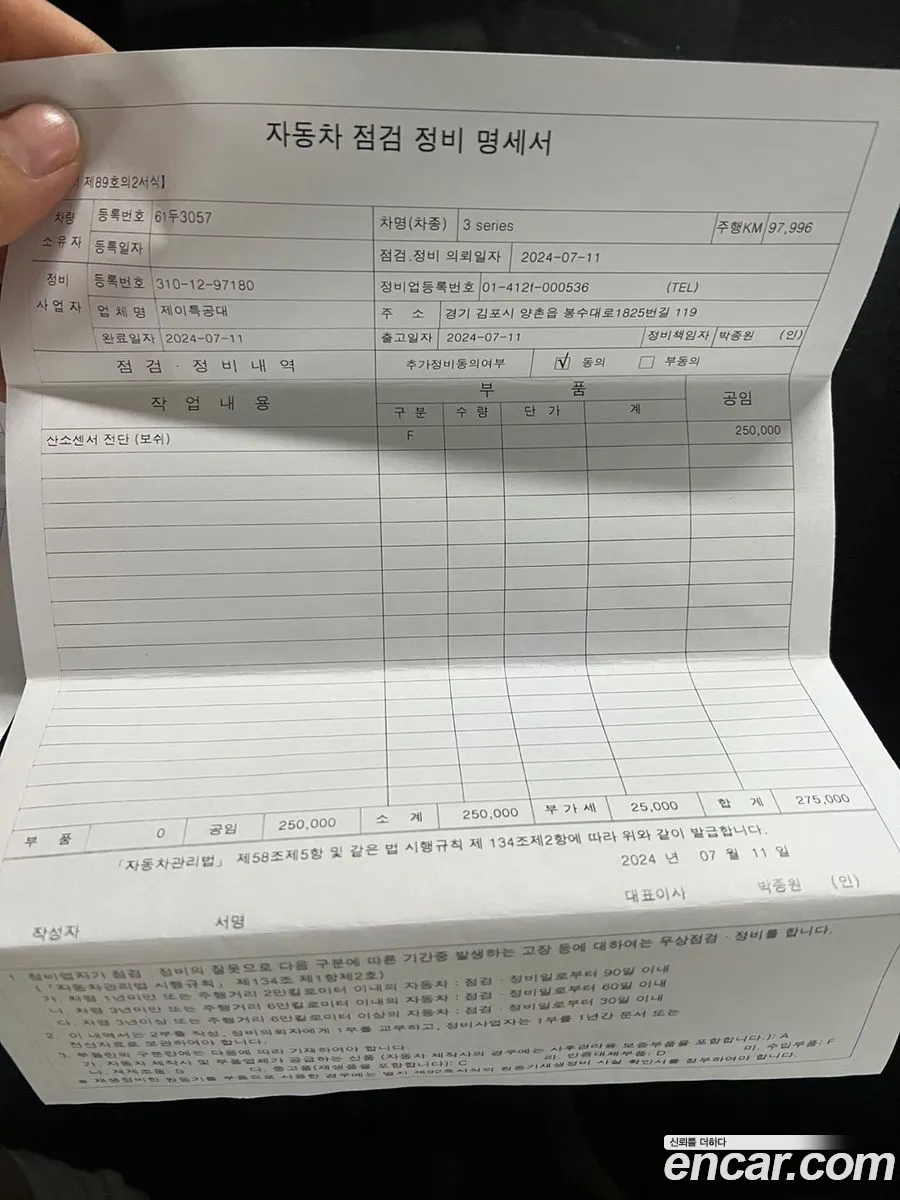 자동차 점검 정비 명세서
제89호의2서식】
차량 소유자 등록번호 61두3057 차명(차종) 3 series 주행KM 97,996
등록일자 점검.정비 의뢰일자 2024-07-11
정비 사업자 등록번호 310-12-97180 정비업등록번호 01-412f-000536 (TEL)
업체명 제이특공대 주 소 경기 김포시 양촌읍 봉수대로1825번길 119
완료일자 2024-07-11 출고일자 2024-07-11 정비책임자 박종원 (인)
점검 · 정비내역 추가정비동의여부 √ 동의 부동의
작업내용 부 품 공임
구분 수량 단가 계
산소센서 전단 (보쉬) F 250,000
부 품 0 공임 250,000 소 계 250,000 부가세 25,000 합 계 275,000
「자동차관리법」 제58조제5항 및 같은 법 시행규칙 제 134조제2항에 따라 위와 같이 발급합니다.
2024 년 07 월 11 일
대표이사 박종원 (인)
작성자 서명
1. 정비업자가 점검 · 정비의 잘못으로 다음 구분에 따른 기간중 발생하는 고장 등에 대하여는 무상점검 · 정비를 합니다.
(「자동차관리법 시행규칙」 제134조 제1항제2호)
가. 차령 1년미만 또는 주행거리 2만킬로미터 이내의 자동차 : 점검 · 정비일로부터 90일 이내
나. 차령 3년미만 또는 주행거리 6만킬로미터 이내의 자동차 : 점검 · 정비일로부터 60일 이내
다. 차령 3년이상 또는 주행거리 6만킬로미터 이상의 자동차 : 점검 · 정비일로부터 30일 이내
2. 이 내역서는 2부를 작성, 정비의뢰자에게 1부를 교부하고, 정비사업자는 1부를 1년간 문서 또는
전산자료로 보관하여야 합니다.
3. 부품란의 구분란에는 다음에 따라 기재하여야 합니다.
가. 자동차 제작사 및 부품업체가 공급하는 신품 (자동차 제작사의 경우에는 사후관리용 보증부품을 포함합니다.): A
나. 재제조품: B 다. 중고품(재생품을 포함합니다): C 라. 인증대체부품: D 마. 수입부품: F
※ 재생정비한 원동기를 부품으로 사용한 경우에는 별지 제92호서식의 원동기재생정비 사실 확인서를 첨부하여야 합니다.
신뢰를 더하다
encar.com